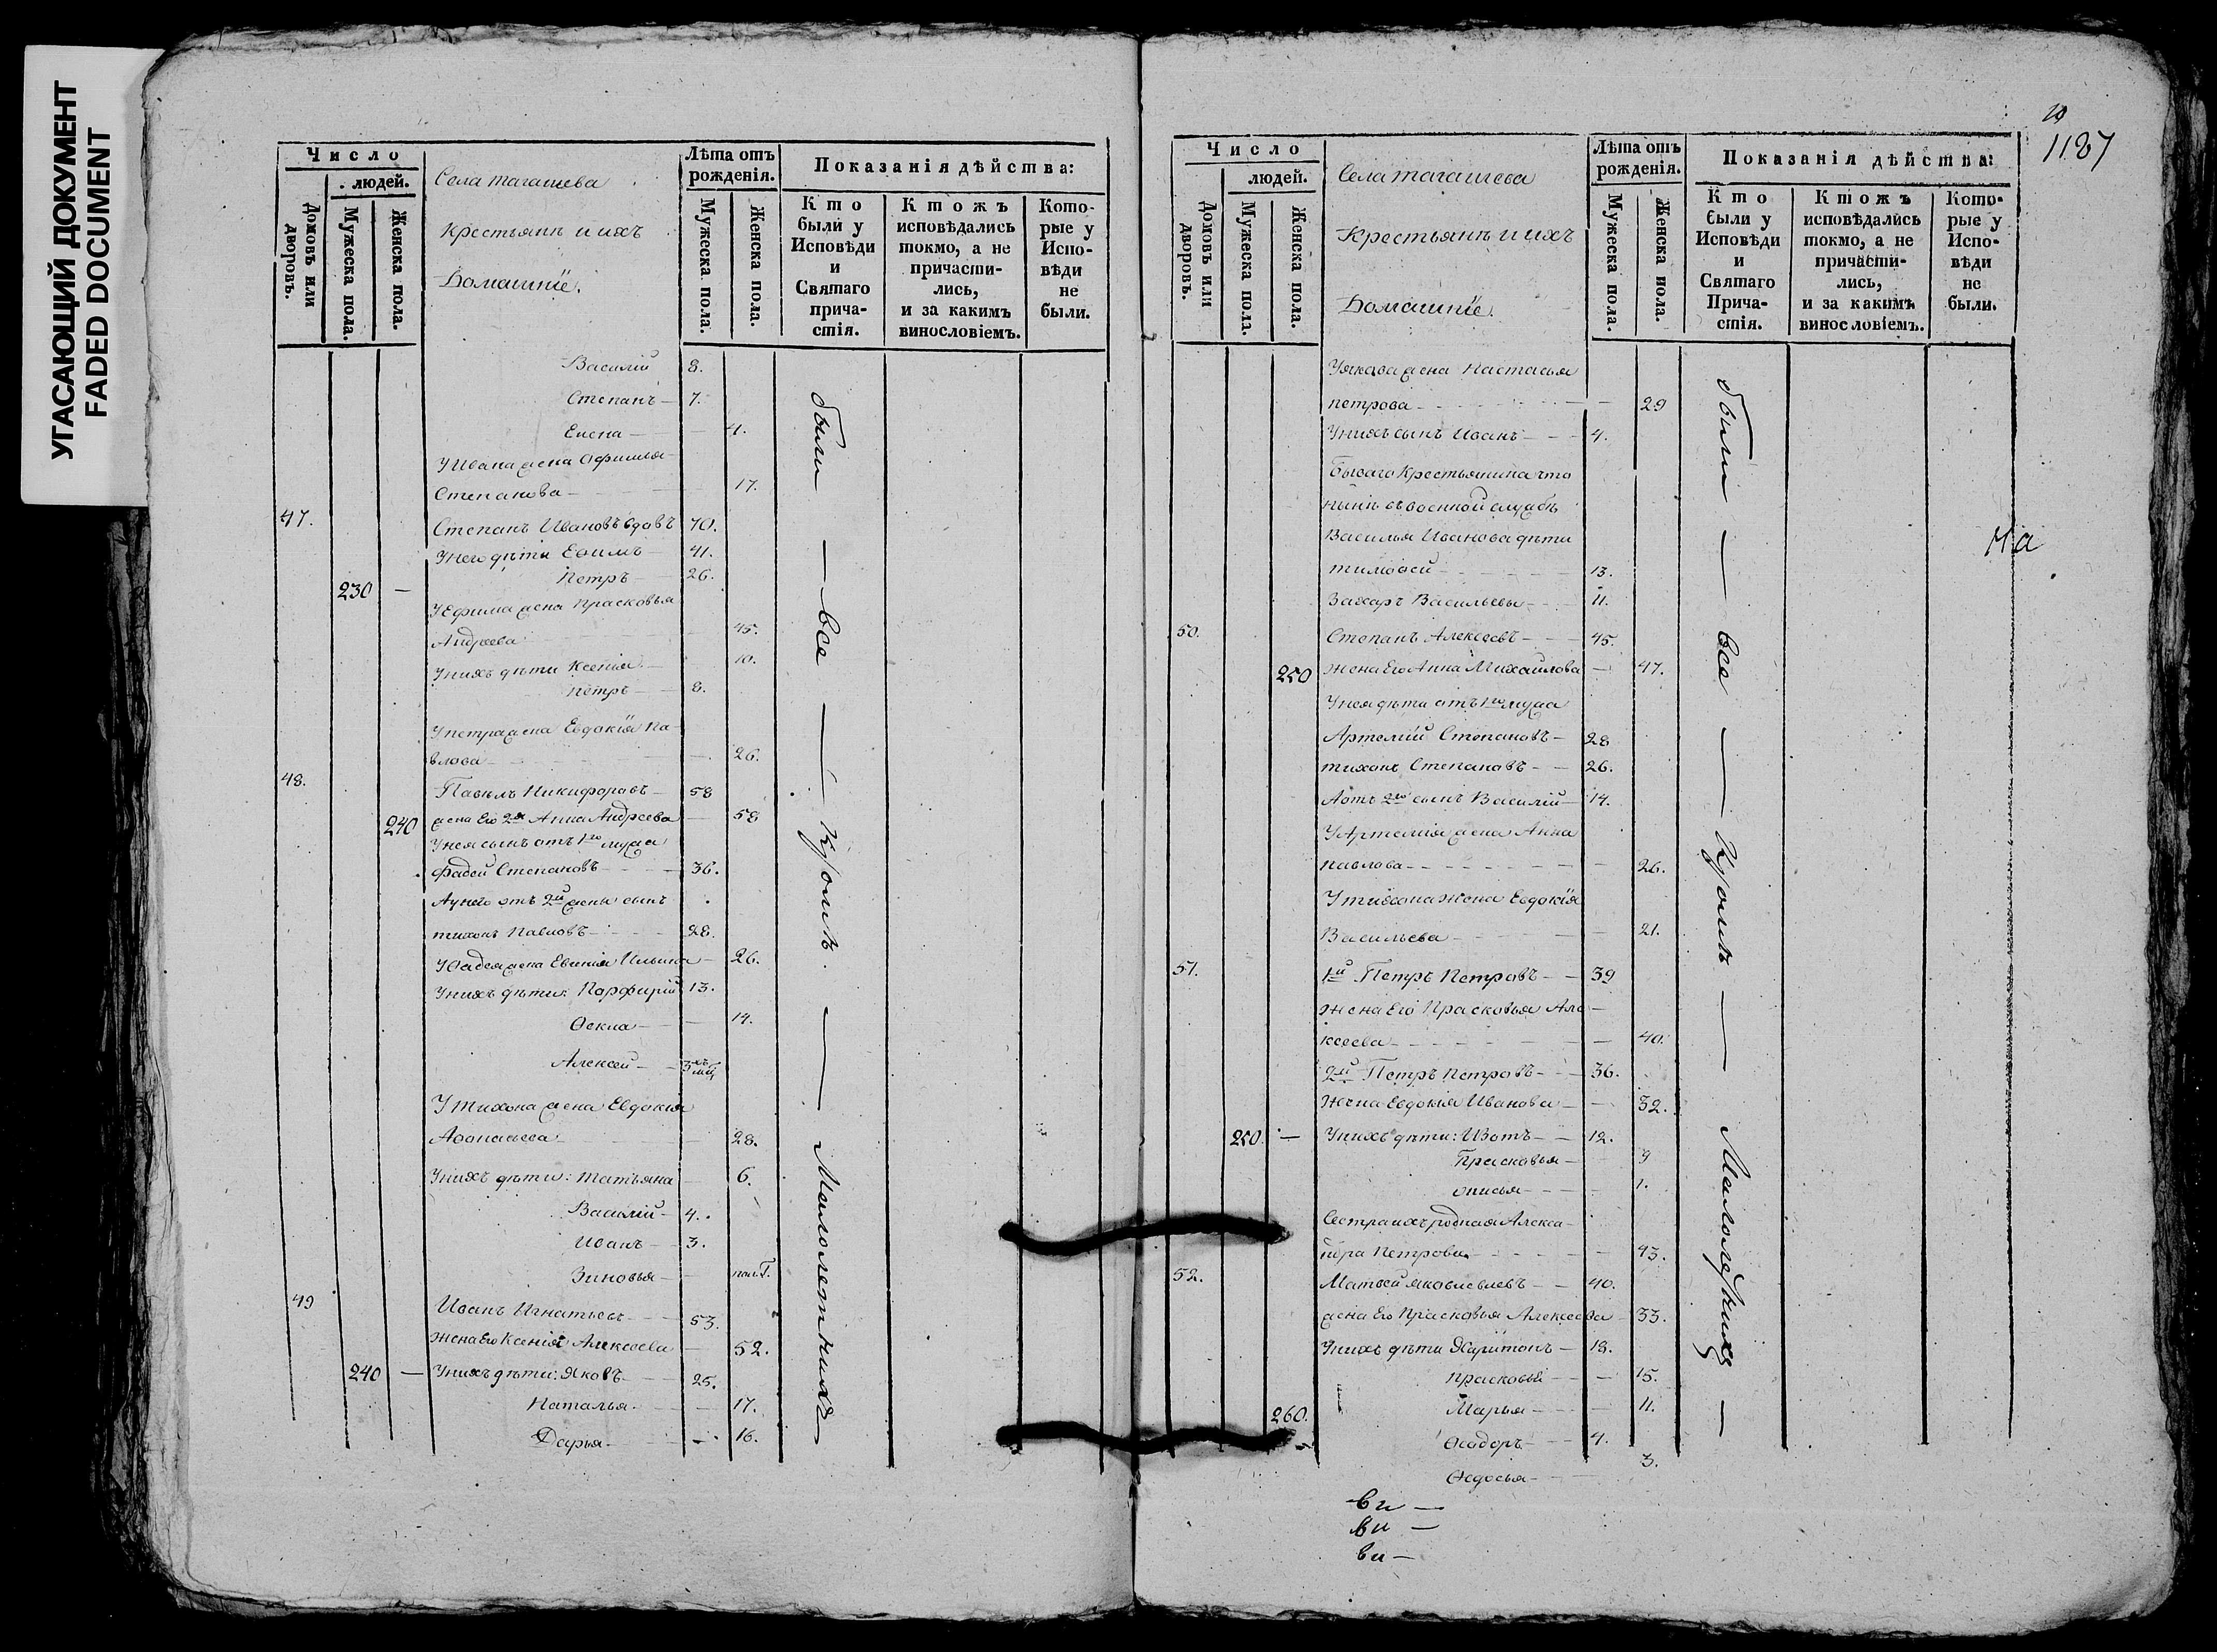 УГАСАЮЩИЙ ДОКУМЕНТ
FADED DOCUMENT
Число
людей.
Домовъ или дворовъ.
Мужеска пола.
Женска пола.
Села тагашева
Крестьянъ и ихъ
Домашнiе.
Лѣта отъ рожденiя.
Мужеска пола.
Женска пола.
Показанiя дѣйства:
Кто были у Исповѣди и Святаго причастiя.
Ктожъ исповѣдались токмо, а не причастились, и за какимъ винословiемъ.
Которые у Исповѣди не были.
Василiй 8.
Степанъ — 7.
Елена — 4.
У Ивана жена Афимья
Степанова — 17.
47. Степанъ Ивановъ вдовъ 70.
У него дѣти Ефимъ — 41.
230 — Петръ — 26.
У Ефима жена Прасковья
Андреева 45.
У нихъ дѣти Ксенiя — 10.
Петръ — 8.
У петра жена Евдокiя Па-
влова — 26.
48. Павелъ Никифоровъ — 58
240 жена Его 2я Анна Андреева — 58
У нея сынъ отъ 1го мужа
Фадей Степановъ — 36.
А у него отъ 2й жены сынъ
тихонъ Павловъ — 28.
У Фадея жена Евгенiя Ильина — 26.
У нихъ дѣти: Порфирiй 13.
Ѳекла — 14.
Алексей — 3хъ мц
У Тихона жена Евдокiя
Аѳонасьева — 28.
У нихъ дѣти: Татьяна — 6.
Василiй — 4.
Иванъ — 3.
Зиновья — пол.г.
49 Иванъ Игнатьевъ — 53.
Жена Его Ксенiя Алексеева — 52.
240 — У нихъ дѣти: Яковъ — 25.
Наталья — 17.
Дарья — 16.
были — все — Кромѣ — Малолетнихъ —
10
1187
Число
людей.
Домовъ или дворовъ.
Мужеска пола.
Женска пола.
Села тагашева
Крестьянъ и ихъ
Домашнiе.
Лѣта отъ рожденiя.
Мужеска пола.
Женска пола.
Показанiя дѣйства:
Кто были у Исповѣди и Святаго Причастiя.
Ктожъ исповѣдались токмо, а не причастились, и за какимъ винословiемъ.
Которые у Исповѣди не были.
У якова жена Настасья
петрова — 29
У нихъ сынъ Иванъ — 4.
Бывшаго Крестьянина что
нынѣ въ военной службѣ
Василья Иванова дѣти
тимоѳей — 13.
Захаръ Васильевы — 11.
50. Степанъ Алексеевъ — 45.
250 Жена Его Анна Михайлова — 47.
У нея дѣти отъ 1го мужа
Артемiй Степановъ — 28
тихонъ Степановъ — 26.
А отъ 2го сынъ Василiй — 14.
У Артемiя жена Анна
павлова — 26.
У тихона жена Евдокiя
Васильева — 21.
51. 1й Петръ Петровъ — 39
Жена Его Прасковья Але-
ксеева — 40.
2й Петръ Петровъ — 36.
Жена Евдокiя Иванова — 32.
250. — У нихъ дѣти: Изотъ — 12.
Прасковья — 9
онисья — 1.
Сестра ихъ родная Алекса-
ндра Петрова — 43.
52. Матвей яковлевъ — 40.
жена Его Прасковья Алексеева — 33.
У нихъ дѣти Харитонъ — 18.
прасковья — 15.
260. Марья — 11.
Ѳеодоръ — 4.
Ѳедосья — 3.
были — все — Кромѣ — Малолетнихъ —
на
ви —
ви —
ви —